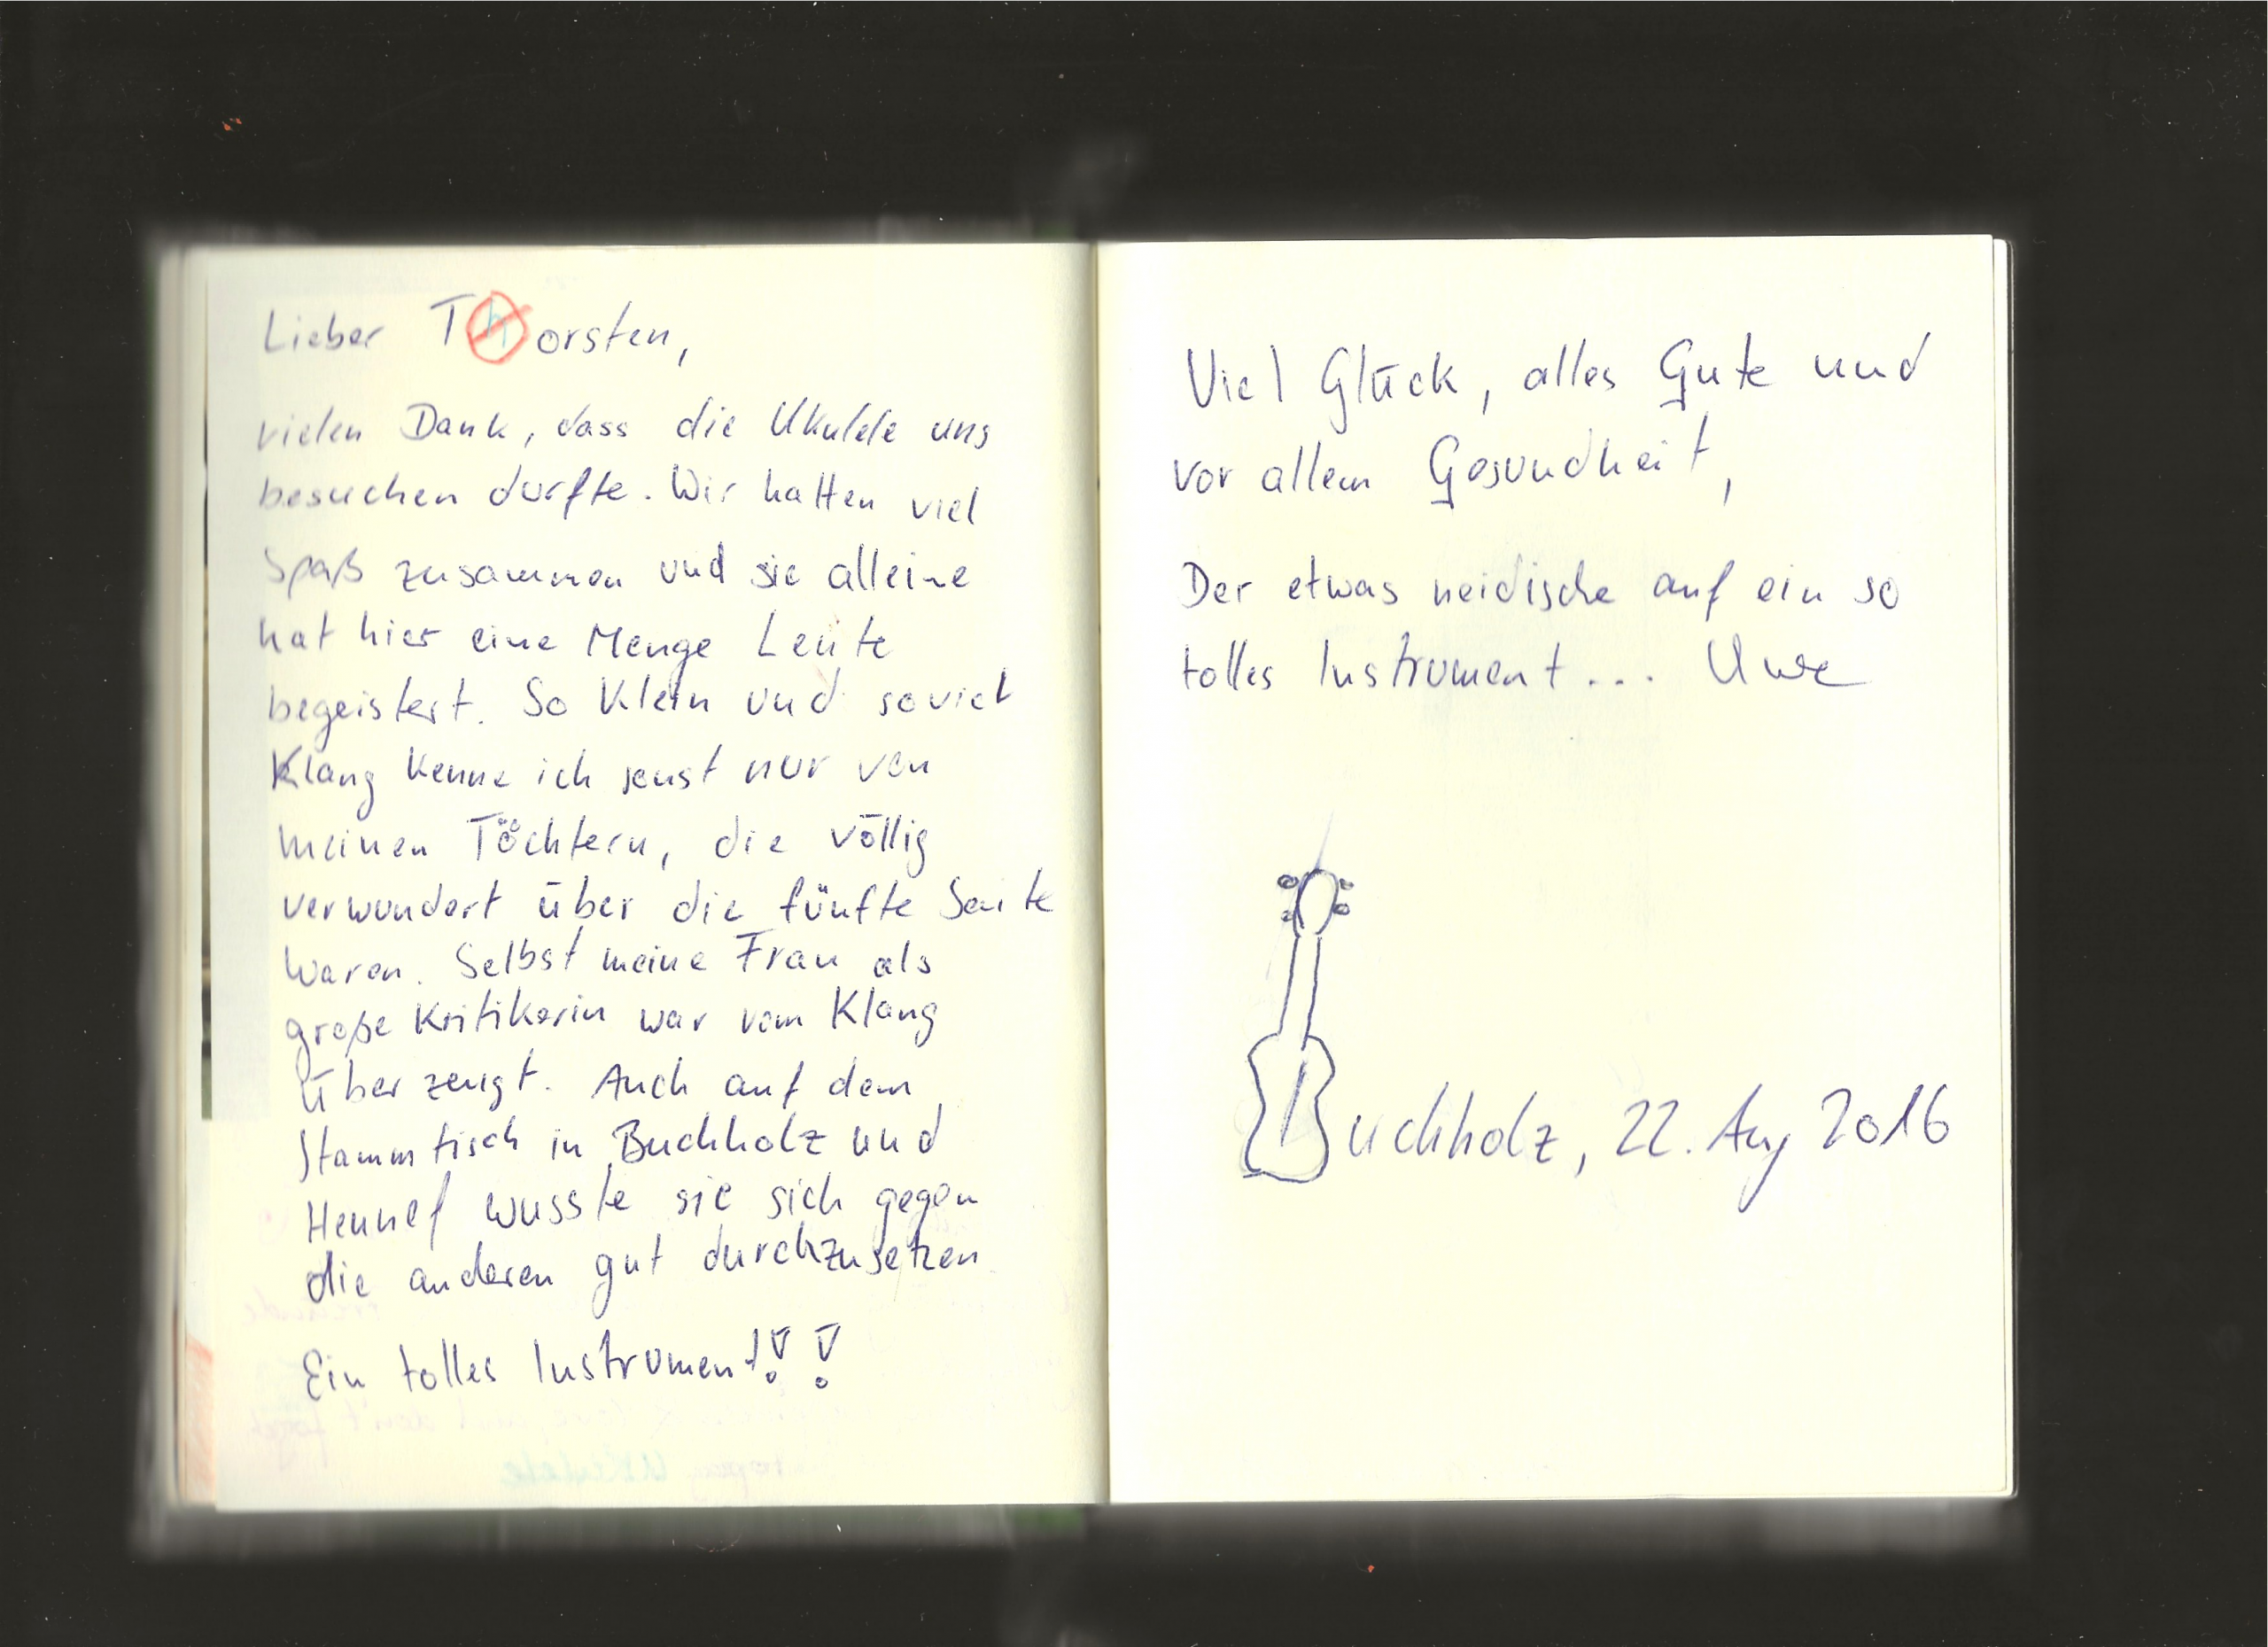 Lieber Thorsten,
vielen Dank, dass die Ukulele uns
besuchen durfte. Wir hatten viel
Spaß zusammen und sie alleine
hat hier eine Menge Leute
begeistert. So Klein und soviel
Klang kenne ich sonst nur von
meinen Töchtern, die völlig
verwundert über die fünfte Saite
waren. Selbst meine Frau als
große Kritikerin war vom Klang
überzeugt. Auch auf dem
Stammtisch in Buchholz und
Hennef wusste sie sich gegen
die anderen gut durchzusetzen
Ein tolles Instrument!!
Viel Glück, alles Gute und
vor allem Gesundheit,
Der etwas neidische auf ein so
tolles Instrument... Uwe
Buchholz, 22. Aug 2016